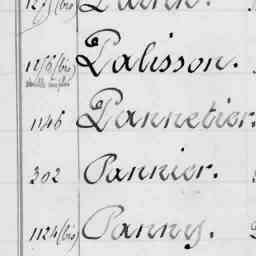 127 (bis)
1276 (bis) Palisson.
1146 Pannetier.
302 Pannier.
1124 (bis) Panny.